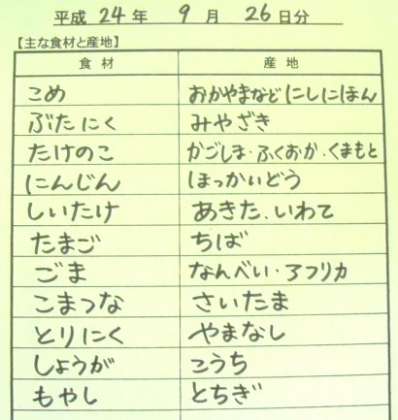 平成 24 年 9 月 26 日分
【主な食材と産地】
食材 産地
こめ おかやまなどにしにほん
ぶたにく みやざき
たけのこ かごしま・ふくおか・くまもと
にんじん ほっかいどう
しいたけ あきた、いわて
たまご ちば
ごま なんべい・アフリカ
こまつな さいたま
とりにく やまなし
しょうが こうち
もやし とちぎ